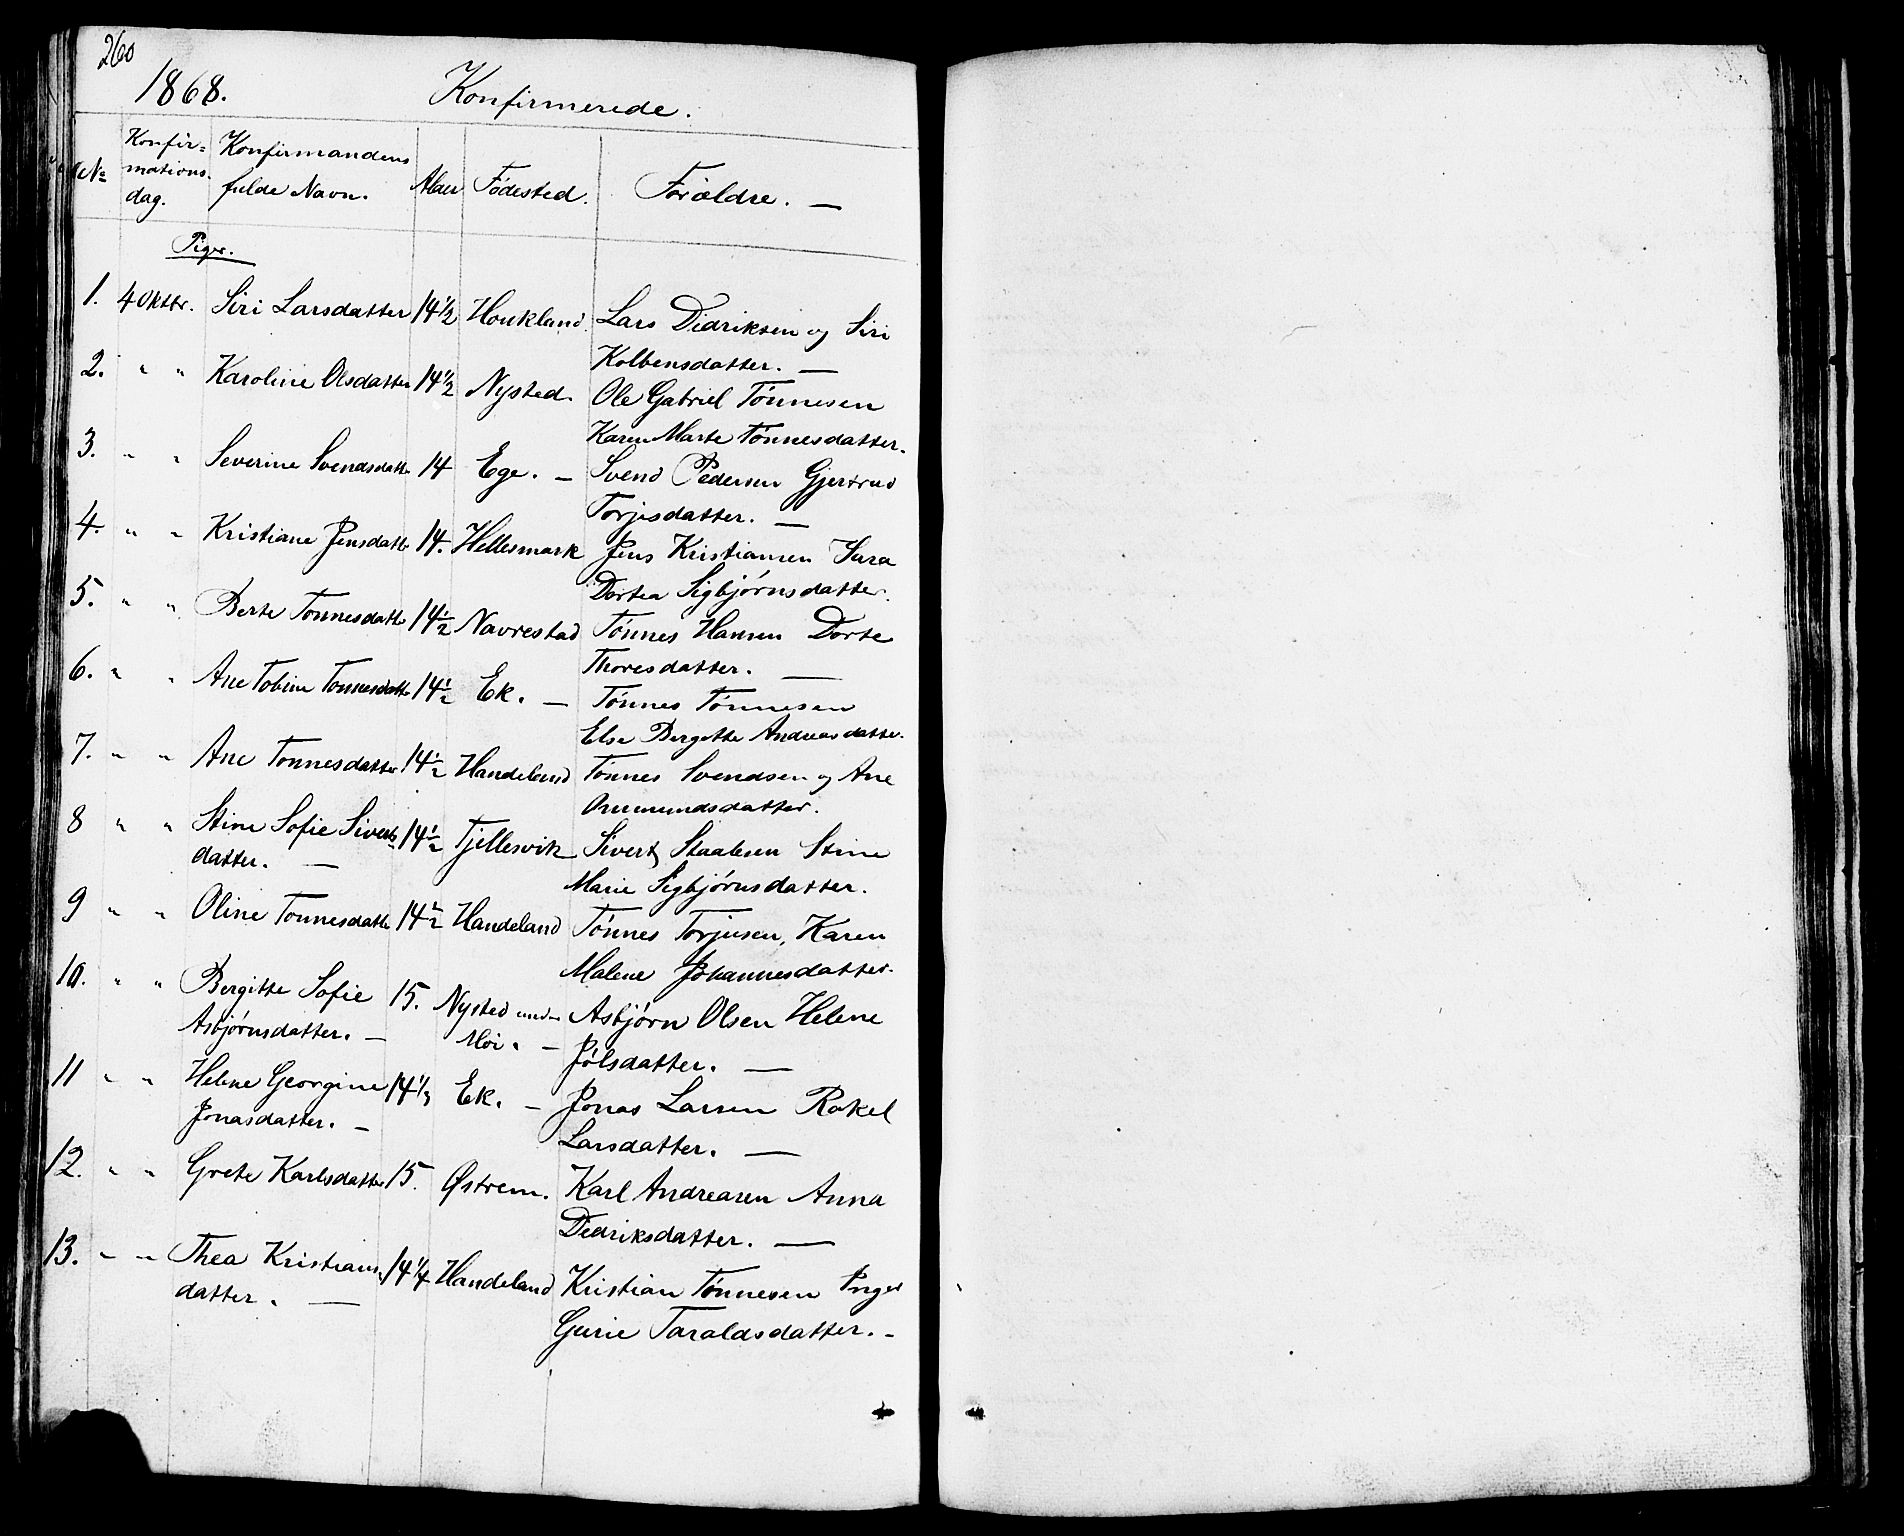 260
1868. Konfirmerede.
No Konfir= mations. dag. Konfirmandens fulde Navn. Alder Födested. Forældre. —
Piger.
1. 4 Oktbr. Siri Larsdatter 14 1/2 Houkland Lars Didriksen og Siri
Kolbensdatter. —
2. " " Karoline Olsdatter 14 1/2 Nysted. Ole Gabriel Tönnesen
Karen Marte Tönnesdatter.
3. " " Severine Svendsdatt 14 Ege. — Svend Pedersen Gjertrud
Torjesdatter. —
4. " " Kristiane Jensdatt 14. Hellesmark Jens Kristiansen Sara
Dortea Sigbjörnsdatter.
5. " " Berte Tonnesdatt 14 1/2 Navrestad Tönnes Hansen Dorte
Thoresdatter. —
6. " " Ane Tobine Tonnesdatt 14 1/2 Ek. — Tönnes Tönnesen
Else Bergitte Andreasdatter.
7. " " Ane Tonnesdatter 14 1/2 Handeland Tönnes Svendsen og Ane
Ommundsdatter.
8 " " Stine Sofie Siverts 14 1/2 Tjellesvik Sivert Staalesen Stine
datter. — Marie Sigbjörnsdatter.
9 " " Oline Tonnesdatt 14 1/2 Handeland Tönnes Torjusen, Karen
Malene Johannesdatter.
10. " " Bergitte Sofie 15. Nysted und= Asbjörn Olsen Helene
Asbjörnsdatter. — Moi. — Jölsdatter. —
11 " " Helene Georgine 14 1/3 Ek. — Jonas Larsen Rakel
Jonasdatter. — Larsdatter. —
12. " " Grete Karlsdatter 15. Østrem. Karl Andreasen Anna
Didriksdatter. —
13. " " Thea Kristians 14 1/4 Handeland Kristian Tönnesen Inger
datter. — Gurie Taraldsdatter. —